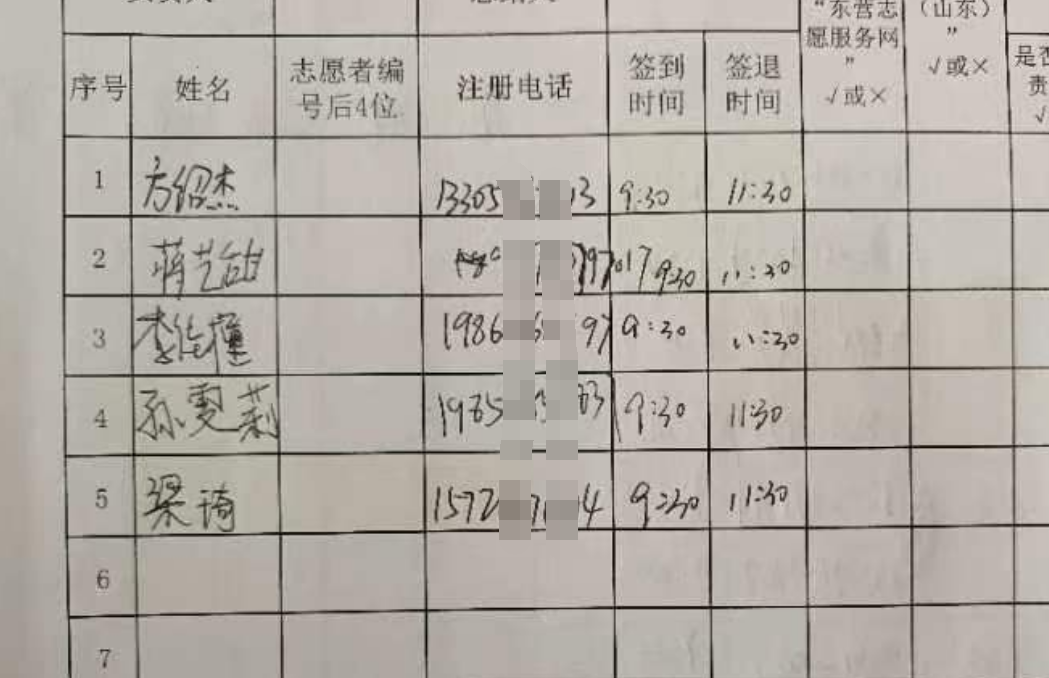 “东营志 （山东）
愿服务网 ”
” √或×
√或×
序号 姓名 志愿者编号后4位 注册电话 签到时间 签退时间 是否
责
√
1 方绍杰 13305 13 9:30 11:30
2 蒋艺 017 9:30 11:30
3 李佳 1986 97 9:30 11:30
4 孙雯莉 1965 9:30 11:30
5 梁琦 1572 4 9:30 11:30
6
7